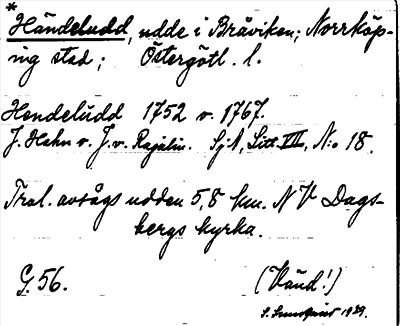 *
Händeludd, udde i Bråviken; Norrköp-
ing stad; Östergötl. l.
Hendeludd 1752 o. 1767.
J. Hahn o. J. v. Rajalin. SjA, Litt. VII, N:o 18.
Trol. avsågs udden 5,8 km. NV Dags-
bergs kyrka.
G. 56.
(Vänd!)
S. 1929.